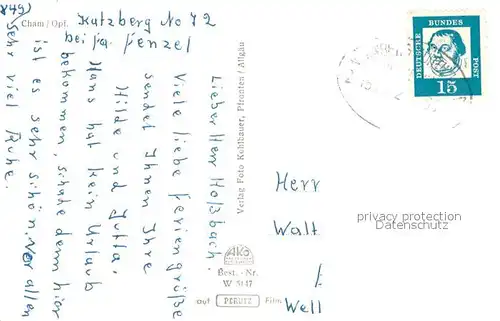 x49)
Cham / Opf.
Katzberg No 72
bei Fa. Fenzel
Lieber Herr Hoßbach.
Viele liebe Feriengrüße
sendet Ihnen Ihre
Hilde und Jutta.
Hans hat kein Urlaub
bekommen, schade denn hier
ist es sehr schön. Vor allen
sehr viel Ruhe.
Verlag Foto Kohlbauer, Pfronten / Allgäu
AKO
Best.-Nr.
W 5147
auf PERUTZ Film
DEUTSCHE BUNDESPOST
15
Herr
Walt
Well
privacy protection
Datenschutz